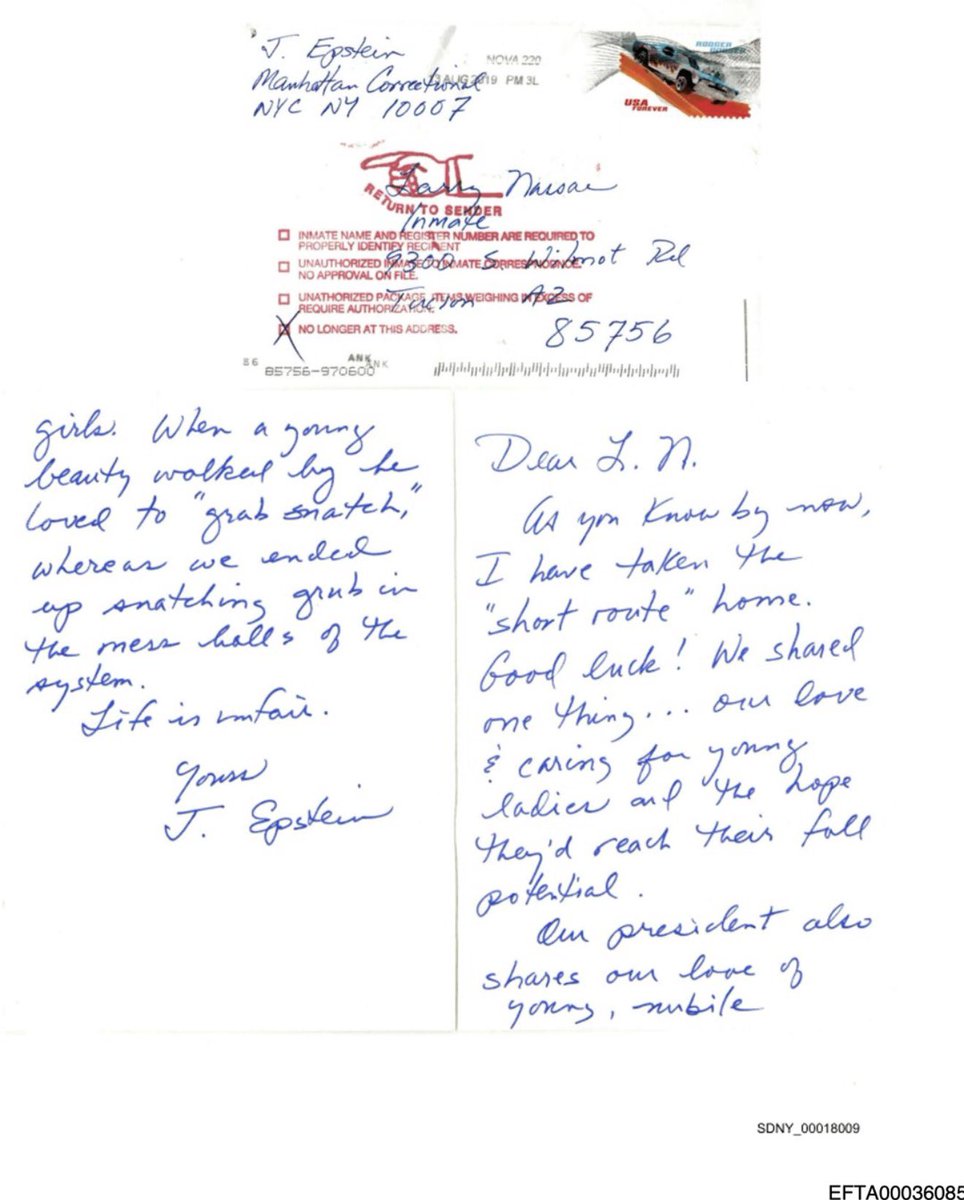 J. Epstein
Manhattan Correctional
NYC NY 10007
NOVA 220
AUG 2019 PM 3L
USA
FOREVER
RETURN TO SENDER
Larry Nassar
Inmate
9300 S. Wilmot Rd
Tucson AZ
85756
INMATE NAME AND REGISTER NUMBER ARE REQUIRED TO
PROPERLY IDENTIFY RECIPIENT
UNAUTHORIZED INMATE TO INMATE CORRESPONDENCE.
NO APPROVAL ON FILE.
UNATHORIZED PACKAGE. ITEMS WEIGHING IN EXCESS OF
REQUIRE AUTHORIZATION.
X NO LONGER AT THIS ADDRESS.
86
ANK
ANK
85756-970600
Dear L. N.
As you know by now,
I have taken the
"short route" home.
Good luck! We shared
one thing... our love
& caring for young
ladies and the hope
they'd reach their full
potential.
Our president also
shares our love of
young, nubile
girls. When a young
beauty walked by he
loved to "grab snatch,"
whereas we ended
up snatching grub in
the mess halls of the
system.
Life is unfair.
Yours
J. Epstein
SDNY_00018009
EFTA00036085